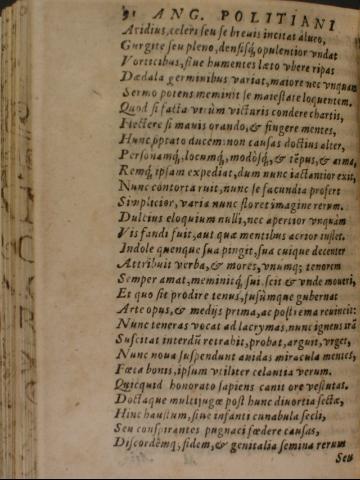 91 ANG. POLITIANI
Aridius, celeri seu se breuis incitat alueo,
Gurgite seu pleno, densisq́; opulentior vndat
Vorticibus, siue humentes læto vbere ripas
Dædala germinibus variat, maiore nec vnquam
Sermo potens meminit se maiestate loquentem.
Quod si facta virûm victuris condere chartis,
Flectere si mauis orando, & fingere mentes,
Hunc optato ducem: non causas doctius alter,
Personamq́;, locumq́;, modosq́;, & tẽpus, & arma,
Remq́; ipsam expediat, dum nunc iactantior exit,
Nunc contorta ruit, nunc se facundia profert
Simplicior, varia nunc floret imagine rerum.
Dulcius eloquium nulli, nec apertior vnquàm
Vis fandi fuit, aut quæ mentibus acrior instet.
Indole quenque sua pingit, sua cuique decenter
Attribuit verba, & mores, vnumq́; tenorem
Semper amat, meminitq́; sui, scit & vnde moueri,
Et quo sit prodire tenus, fusúmque gubernat
Arte opus, & medijs prima, ac postrema reuincit:
Nunc teneras vocat ad lacrymas, nunc ignens irã
Suscitat interdũ retrahit, probat, arguit, vrget,
Nunc noua suspendunt auidas miracula mentes,
Fœta bonis, ipsum vtiliter celantia verum.
Quicquid honorato sapiens canit ore vetustas.
Doctaque multijugæ post hunc diuortia sectæ,
Hinc haustum, siue infanti cunabula secli,
Seu conspirantes pugnaci fœdere causas,
Discordẽmq́; fidem, & genitalia semina rerum
Seu